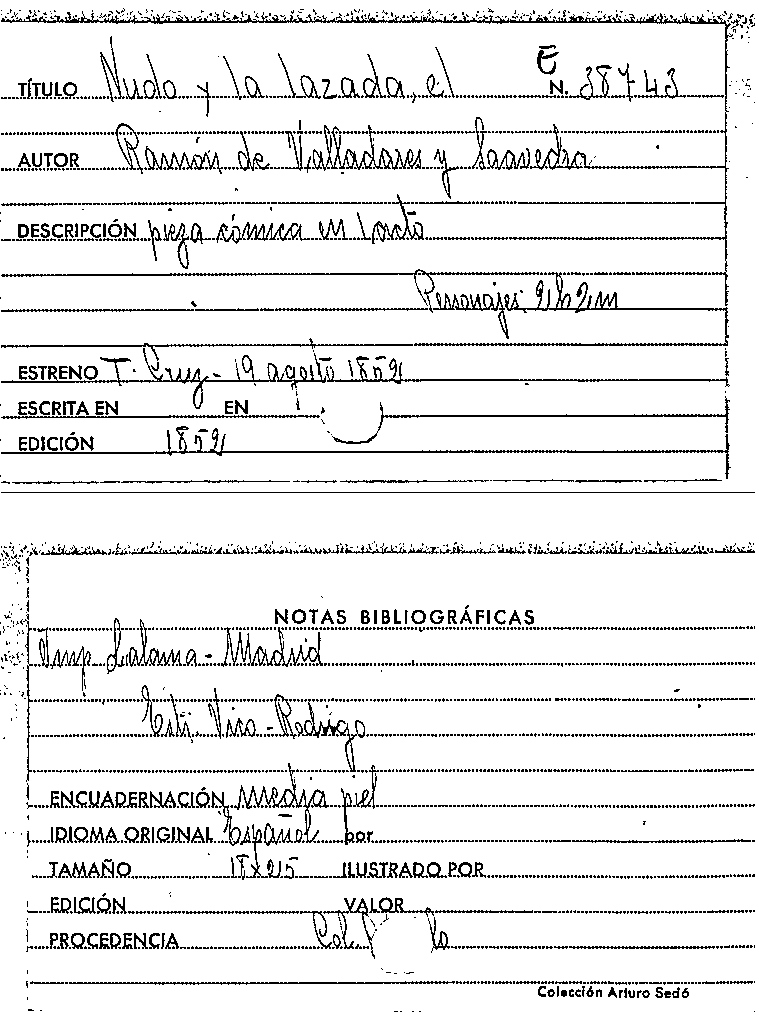 TÍTULO Nudo y la lazada, el E N. 38743
AUTOR Ramón de Valladares y Saavedra
DESCRIPCIÓN pieza cómica en 1 acto
Personajes: 2h2m
ESTRENO T. Cruz - 19 agosto 1852
ESCRITA EN EN
EDICIÓN 1852
NOTAS BIBLIOGRÁFICAS
Imp. Lalama - Madrid
Estr. Vico - Rodrigo
ENCUADERNACIÓN media piel
IDIOMA ORIGINAL Español por
TAMAÑO 18x25 ILUSTRADO POR
EDICIÓN VALOR
PROCEDENCIA Col.
Colección Arturo Sedó